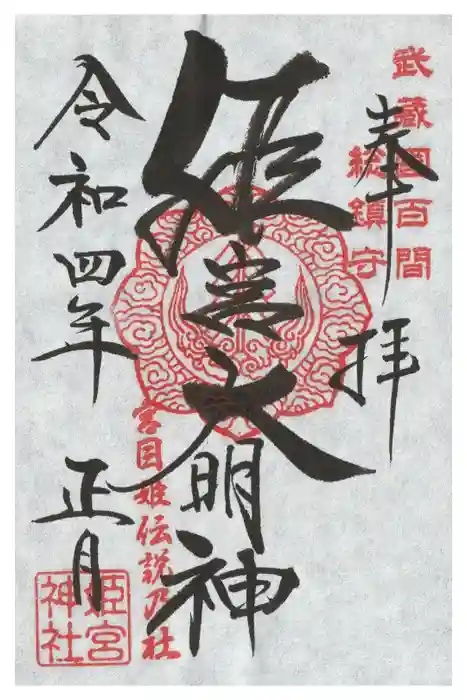 武蔵国百間
総鎮守
奉拝
姫宮大明神
宮目姫伝説乃社
令和四年正月
姫宮
神社